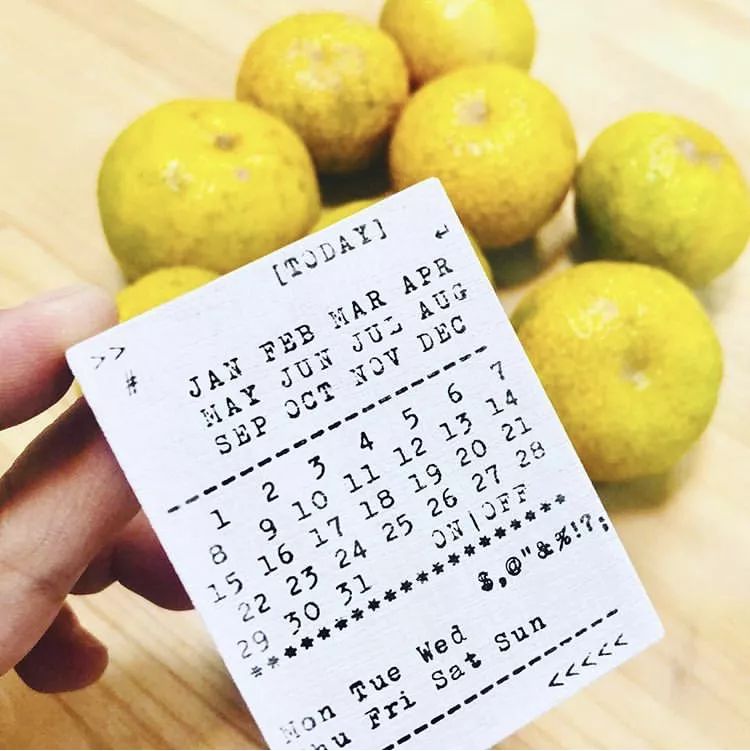 [TODAY]
↵
>>
#
JAN FEB MAR APR
MAY JUN JUL AUG
SEP OCT NOV DEC
1 2 3 4 5 6 7
8 9 10 11 12 13 14
15 16 17 18 19 20 21
22 23 24 25 26 27 28
29 30 31 ON|OFF
$,@"&%!?;
Mon Tue Wed
Thu Fri Sat Sun
<<<<<